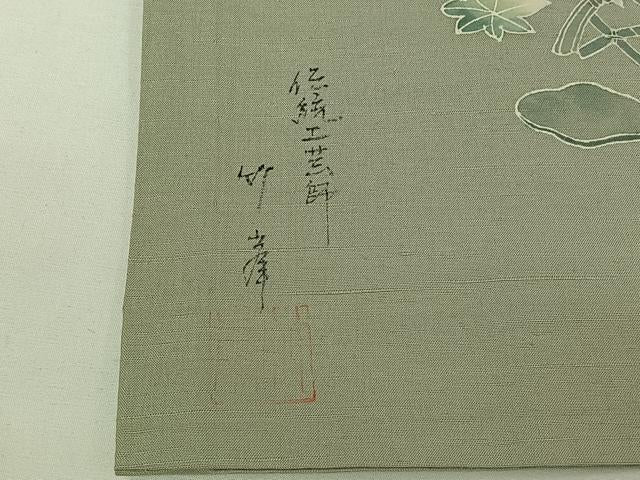 伝統工芸師
竹峯